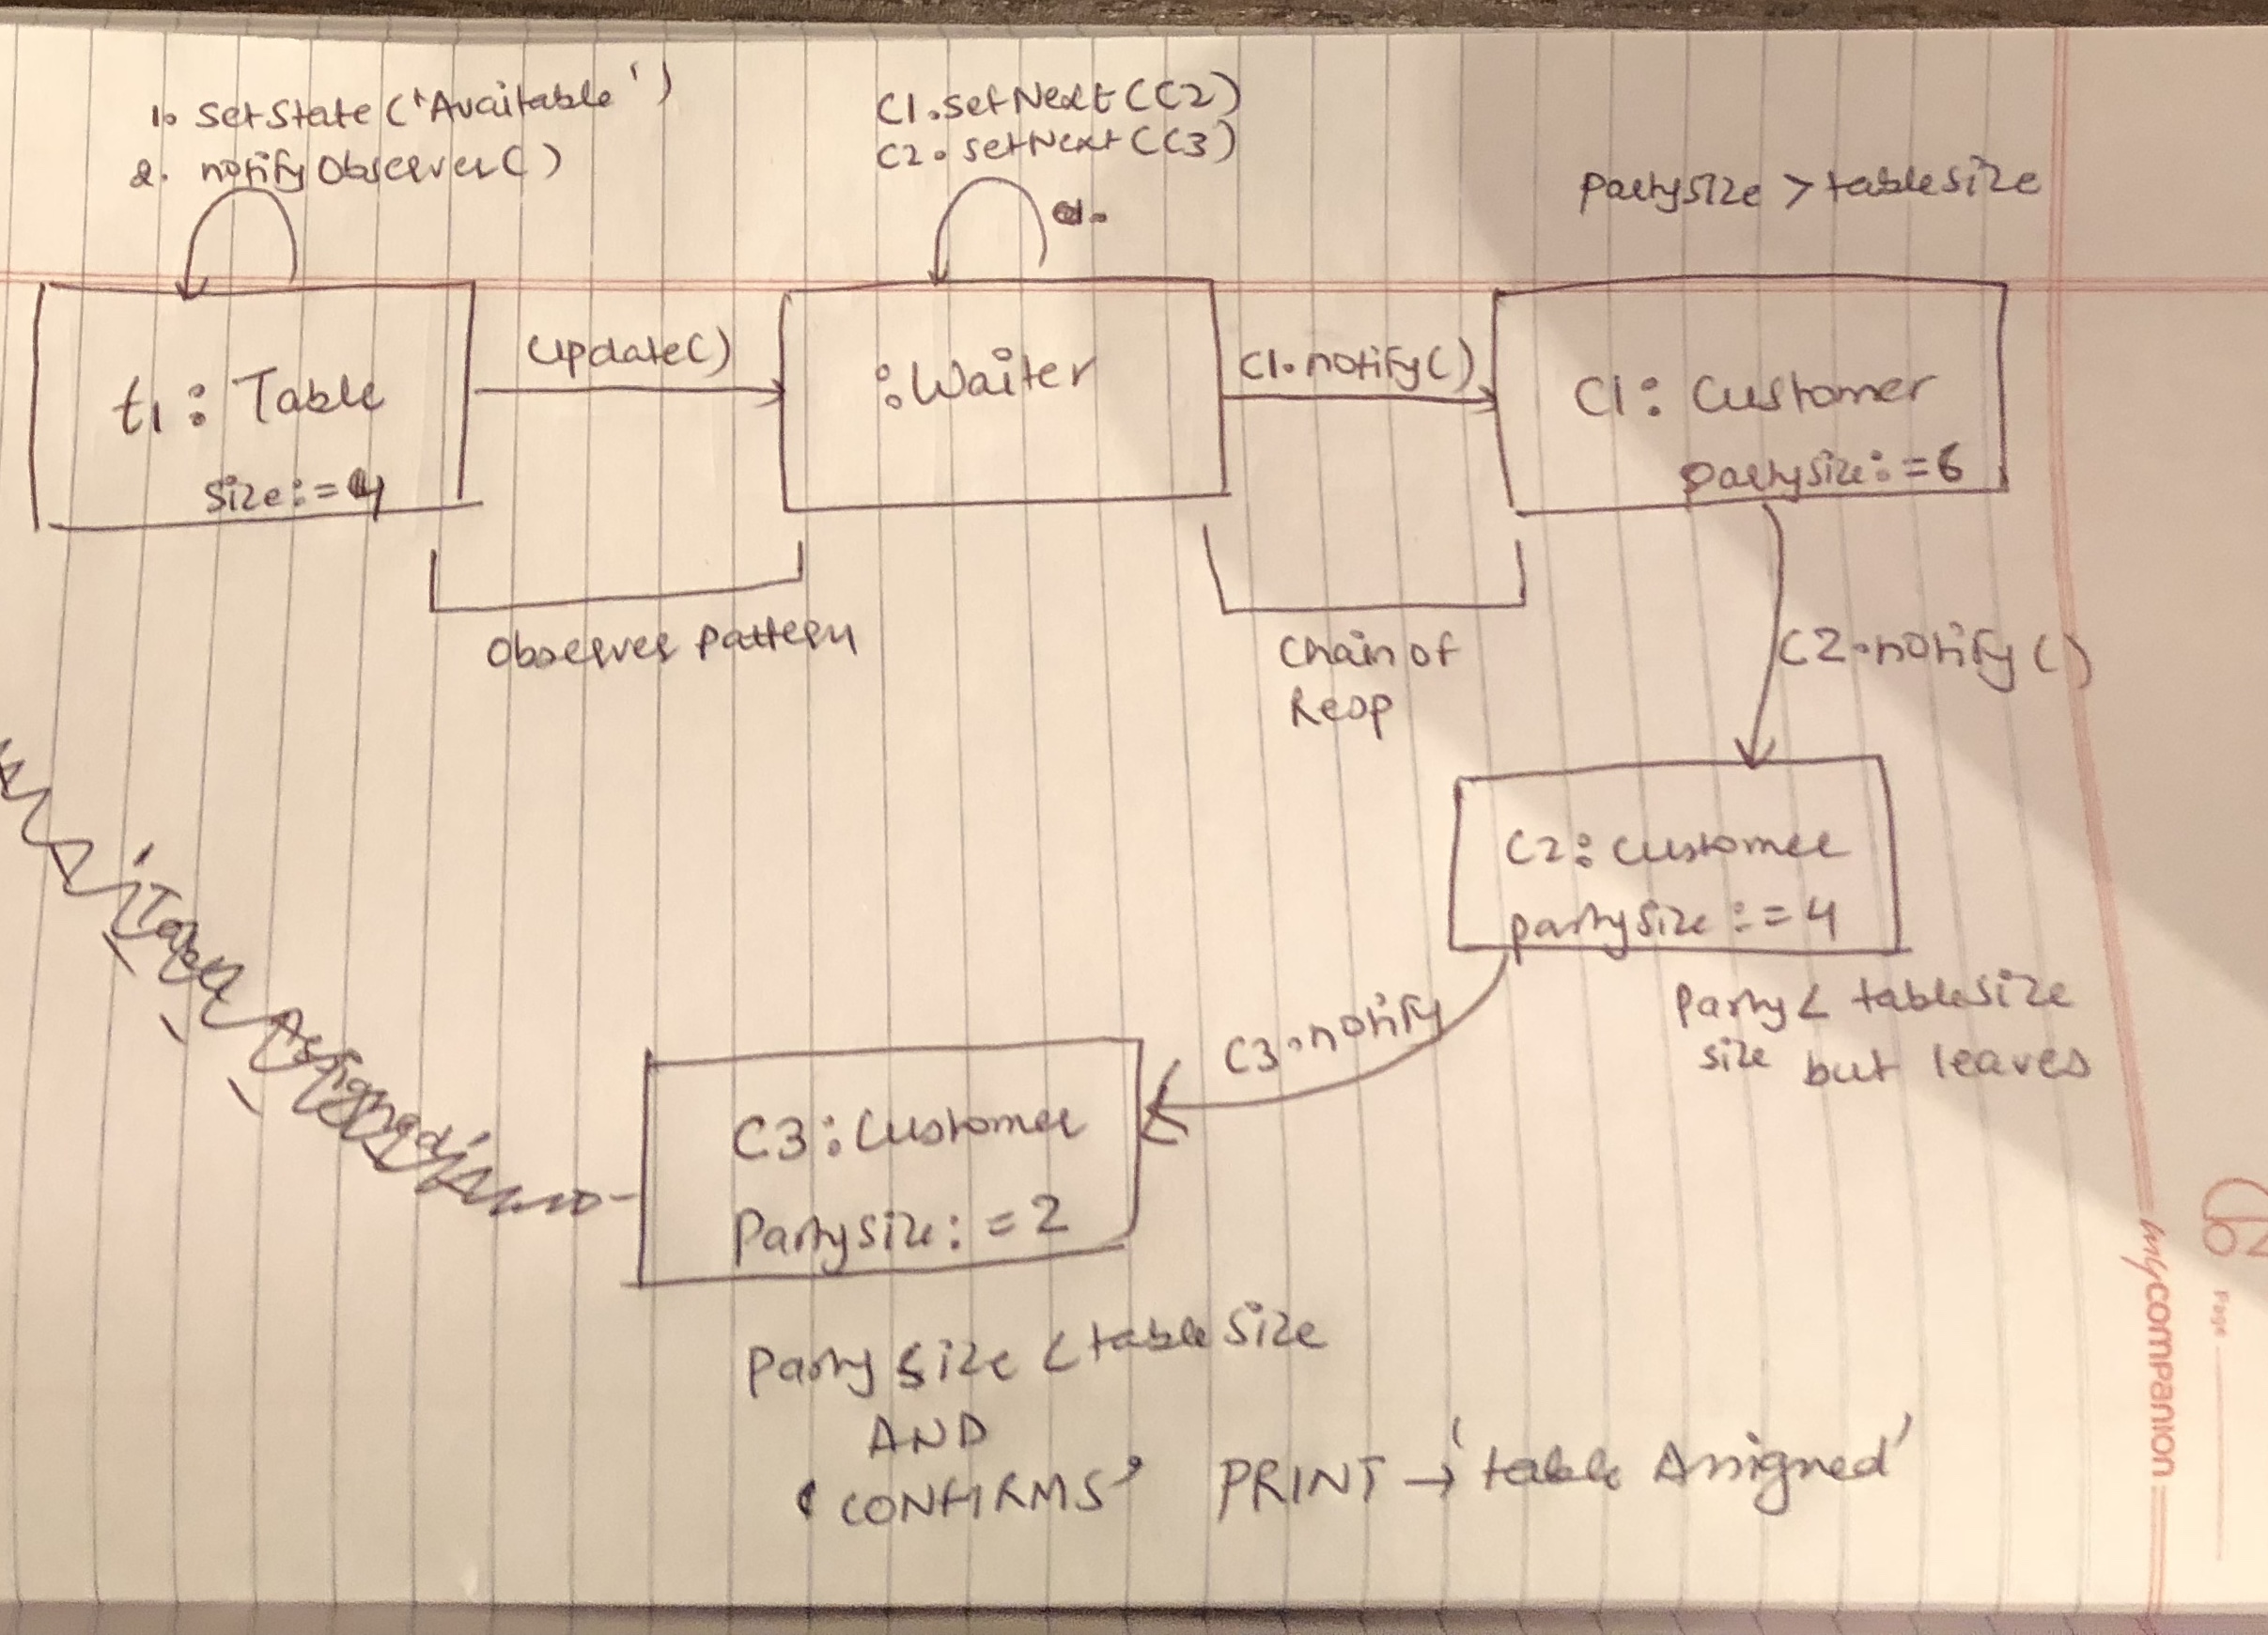 1. SetState('Available')
2. notifyObserver()
C1.setNext(C2)
C2.setNext(C3)
partysize > tablesize
t1: Table
size:=4
Update()
:Waiter
C1.notify()
C1: Customer
partysize:=6
Observer Pattern
Chain of
Resp
C2.notify()
C2: Customer
partysize:=4
Party < tablesize
size but leaves
C3.notify
'Table Assigned'
C3: Customer
Partysize:=2
Party size < table size
AND
'CONFIRMS' PRINT → 'table Assigned'
mycompanion
Page